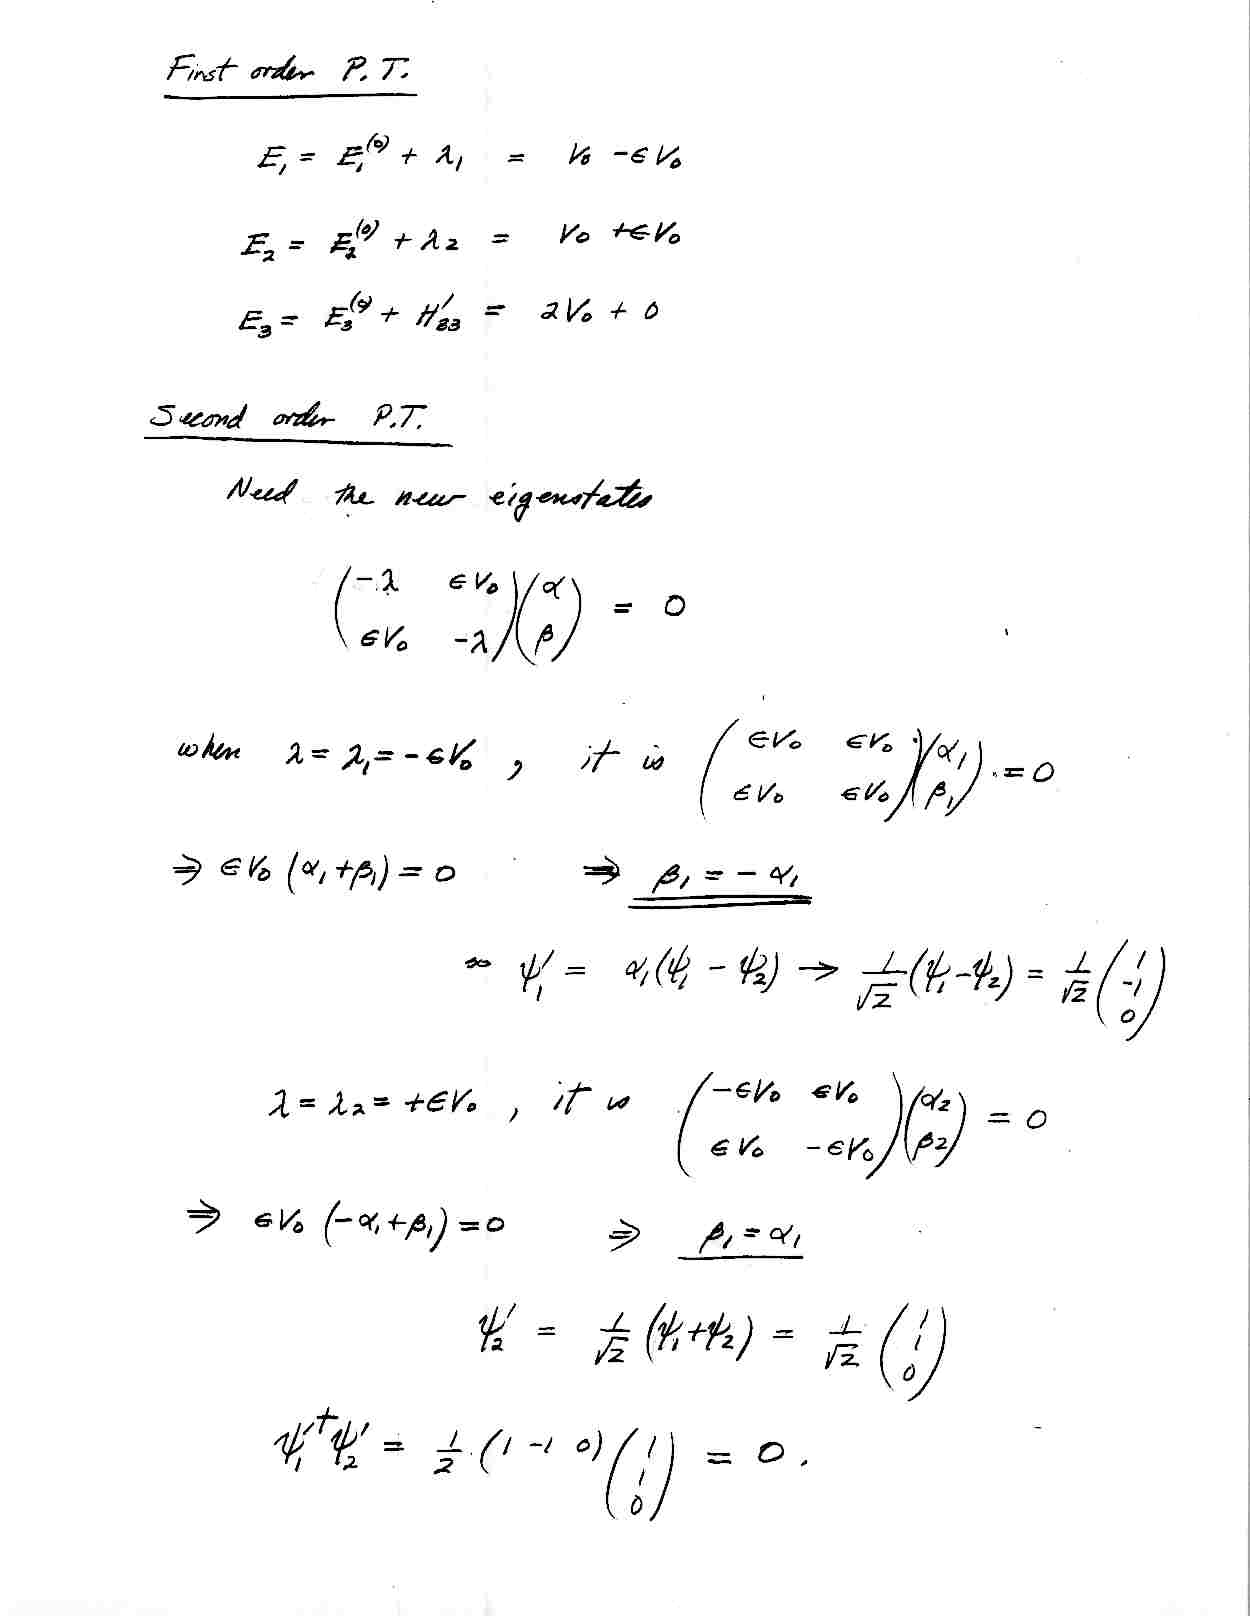 First order P.T.
E₁ = E₁⁽⁰⁾ + λ₁ = V₀ - ϵV₀
E₂ = E₂⁽⁰⁾ + λ₂ = V₀ + ϵV₀
E₃ = E₃⁽⁰⁾ + H′₃₃ = 2V₀ + 0
Second order P.T.
Need the new eigenstates
(-λ ϵV₀; ϵV₀ -λ)(α; β) = 0
when λ = λ₁ = -ϵV₀, it is (ϵV₀ ϵV₀; ϵV₀ ϵV₀)(α₁; β₁) = 0
⇒ ϵV₀ (α₁+β₁) = 0 ⇒ β₁ = -α₁
∞ ψ₁′ = α₁(ψ₁ - ψ₂) → 1/√2 (ψ₁-ψ₂) = 1/√2 (1; -1; 0)
λ = λ₂ = +ϵV₀, it is (-ϵV₀ ϵV₀; ϵV₀ -ϵV₀)(α₂; β₂) = 0
⇒ ϵV₀ (-α₁+β₁) = 0 ⇒ β₁ = α₁
ψ₂′ = 1/√2 (ψ₁+ψ₂) = 1/√2 (1; 1; 0)
ψ₁′†ψ₂′ = 1/2 (1 -1 0)(1; 1; 0) = 0.